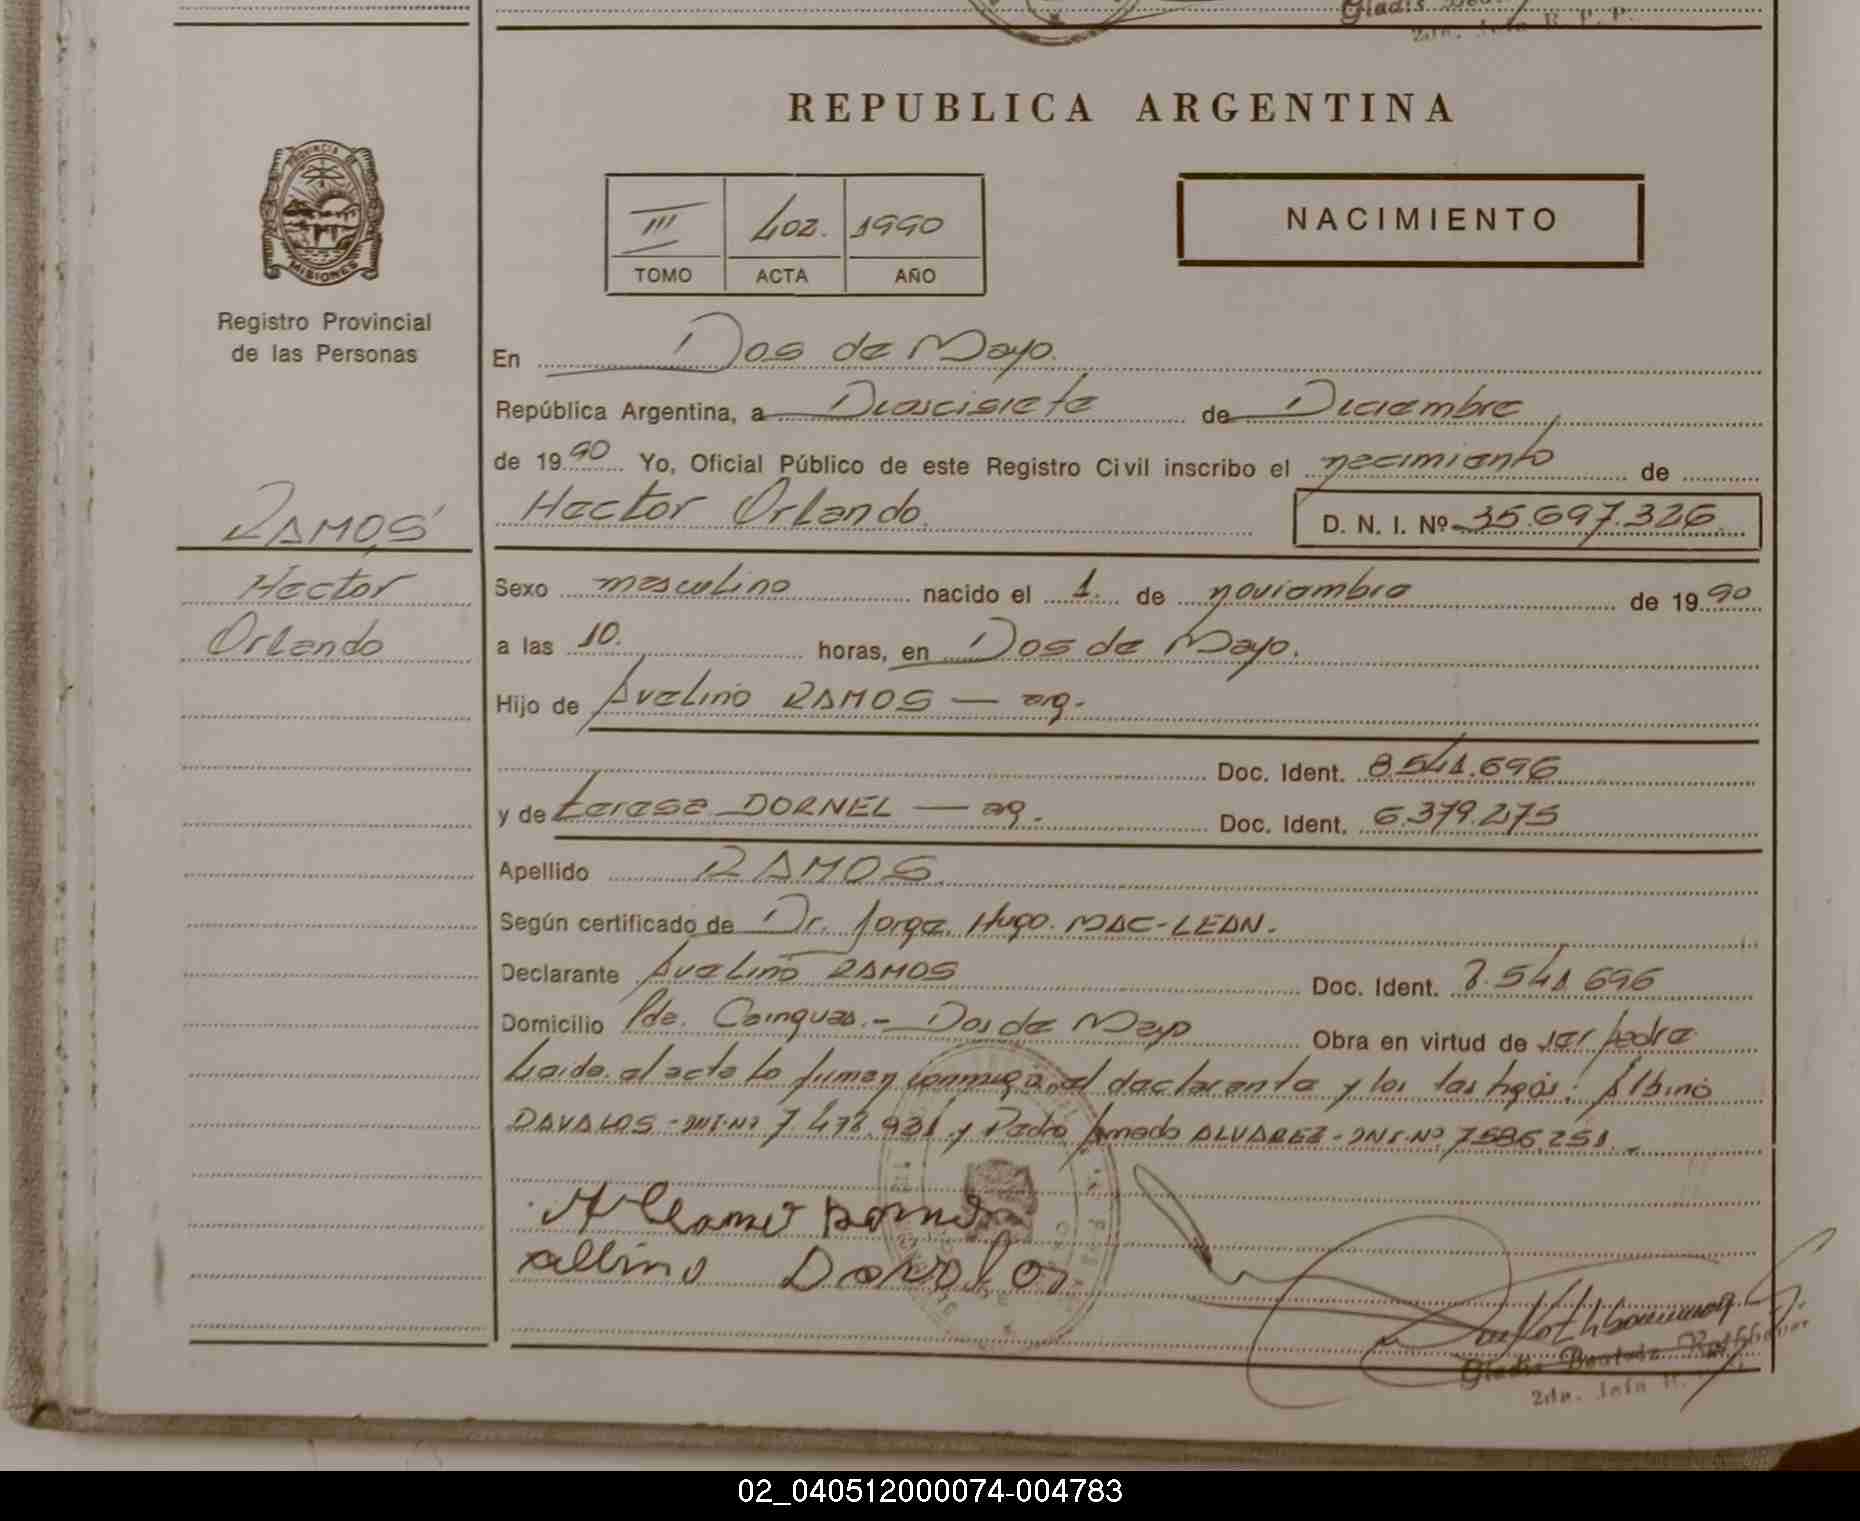 Gladis
2da. Jefa R. P. P.
REPUBLICA ARGENTINA
PROVINCIA DE
MISIONES
III 402. 1990
TOMO ACTA AÑO
NACIMIENTO
Registro Provincial
de las Personas
En Dos de Mayo.
República Argentina, a Diescisiete de Diciembre
de 1990 Yo, Oficial Público de este Registro Civil inscribo el necimiento de
Hector Orlando. D. N. I. Nº 35.697.326
RAMOS
Hector
Orlando
Sexo masculino nacido el 1. de noviembre de 1990
a las 10. horas, en Dos de Mayo.
Hijo de Avelino RAMOS — arg.
Doc. Ident. 8.541.696
y de teresa DORNEL — arg. Doc. Ident. 6.379.275
Apellido RAMOS.
Según certificado de Dr. Jorge Hugo. MAC-LEAN.
Declarante Avelino RAMOS Doc. Ident. 8.541.696
Domicilio Pde. Cainguas.- Dos de Mayo Obra en virtud de ser padre
Leida el acta la firman conmigo el declarante y los testigos: Albino
DAVALOS - DNI. Nº 7.478.931 y Pedro Amado ALVAREZ - DNI. Nº 7586.251.-
albino Davalos
Gladis Beatriz Rothbauer
2da. Jefa R.
02_040512000074-004783